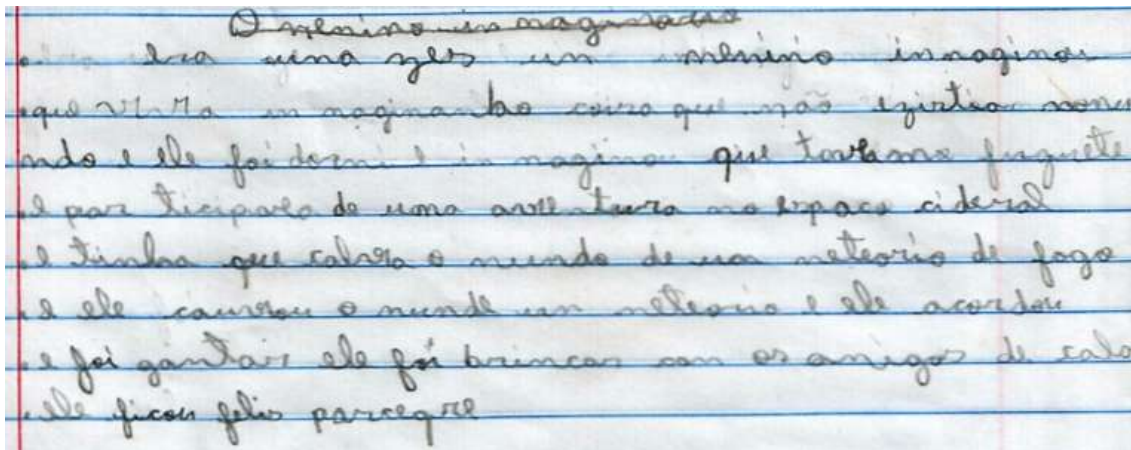 O menino in maginario
era uma ves um menino innaginou
que vivia in maginanbo coisa que não izistia nomu
ndo e ele foi dormi e in maginou que tava no fuguete
e par ticipava de uma aventura no espaco cideral
e tinha que calvra o mundo de um meteorio de fogo
e ele caurvou o munde um meteorio e ele acordou
e foi gantar ele foi brincar con os amigos de cala
ele ficou felis parcegre